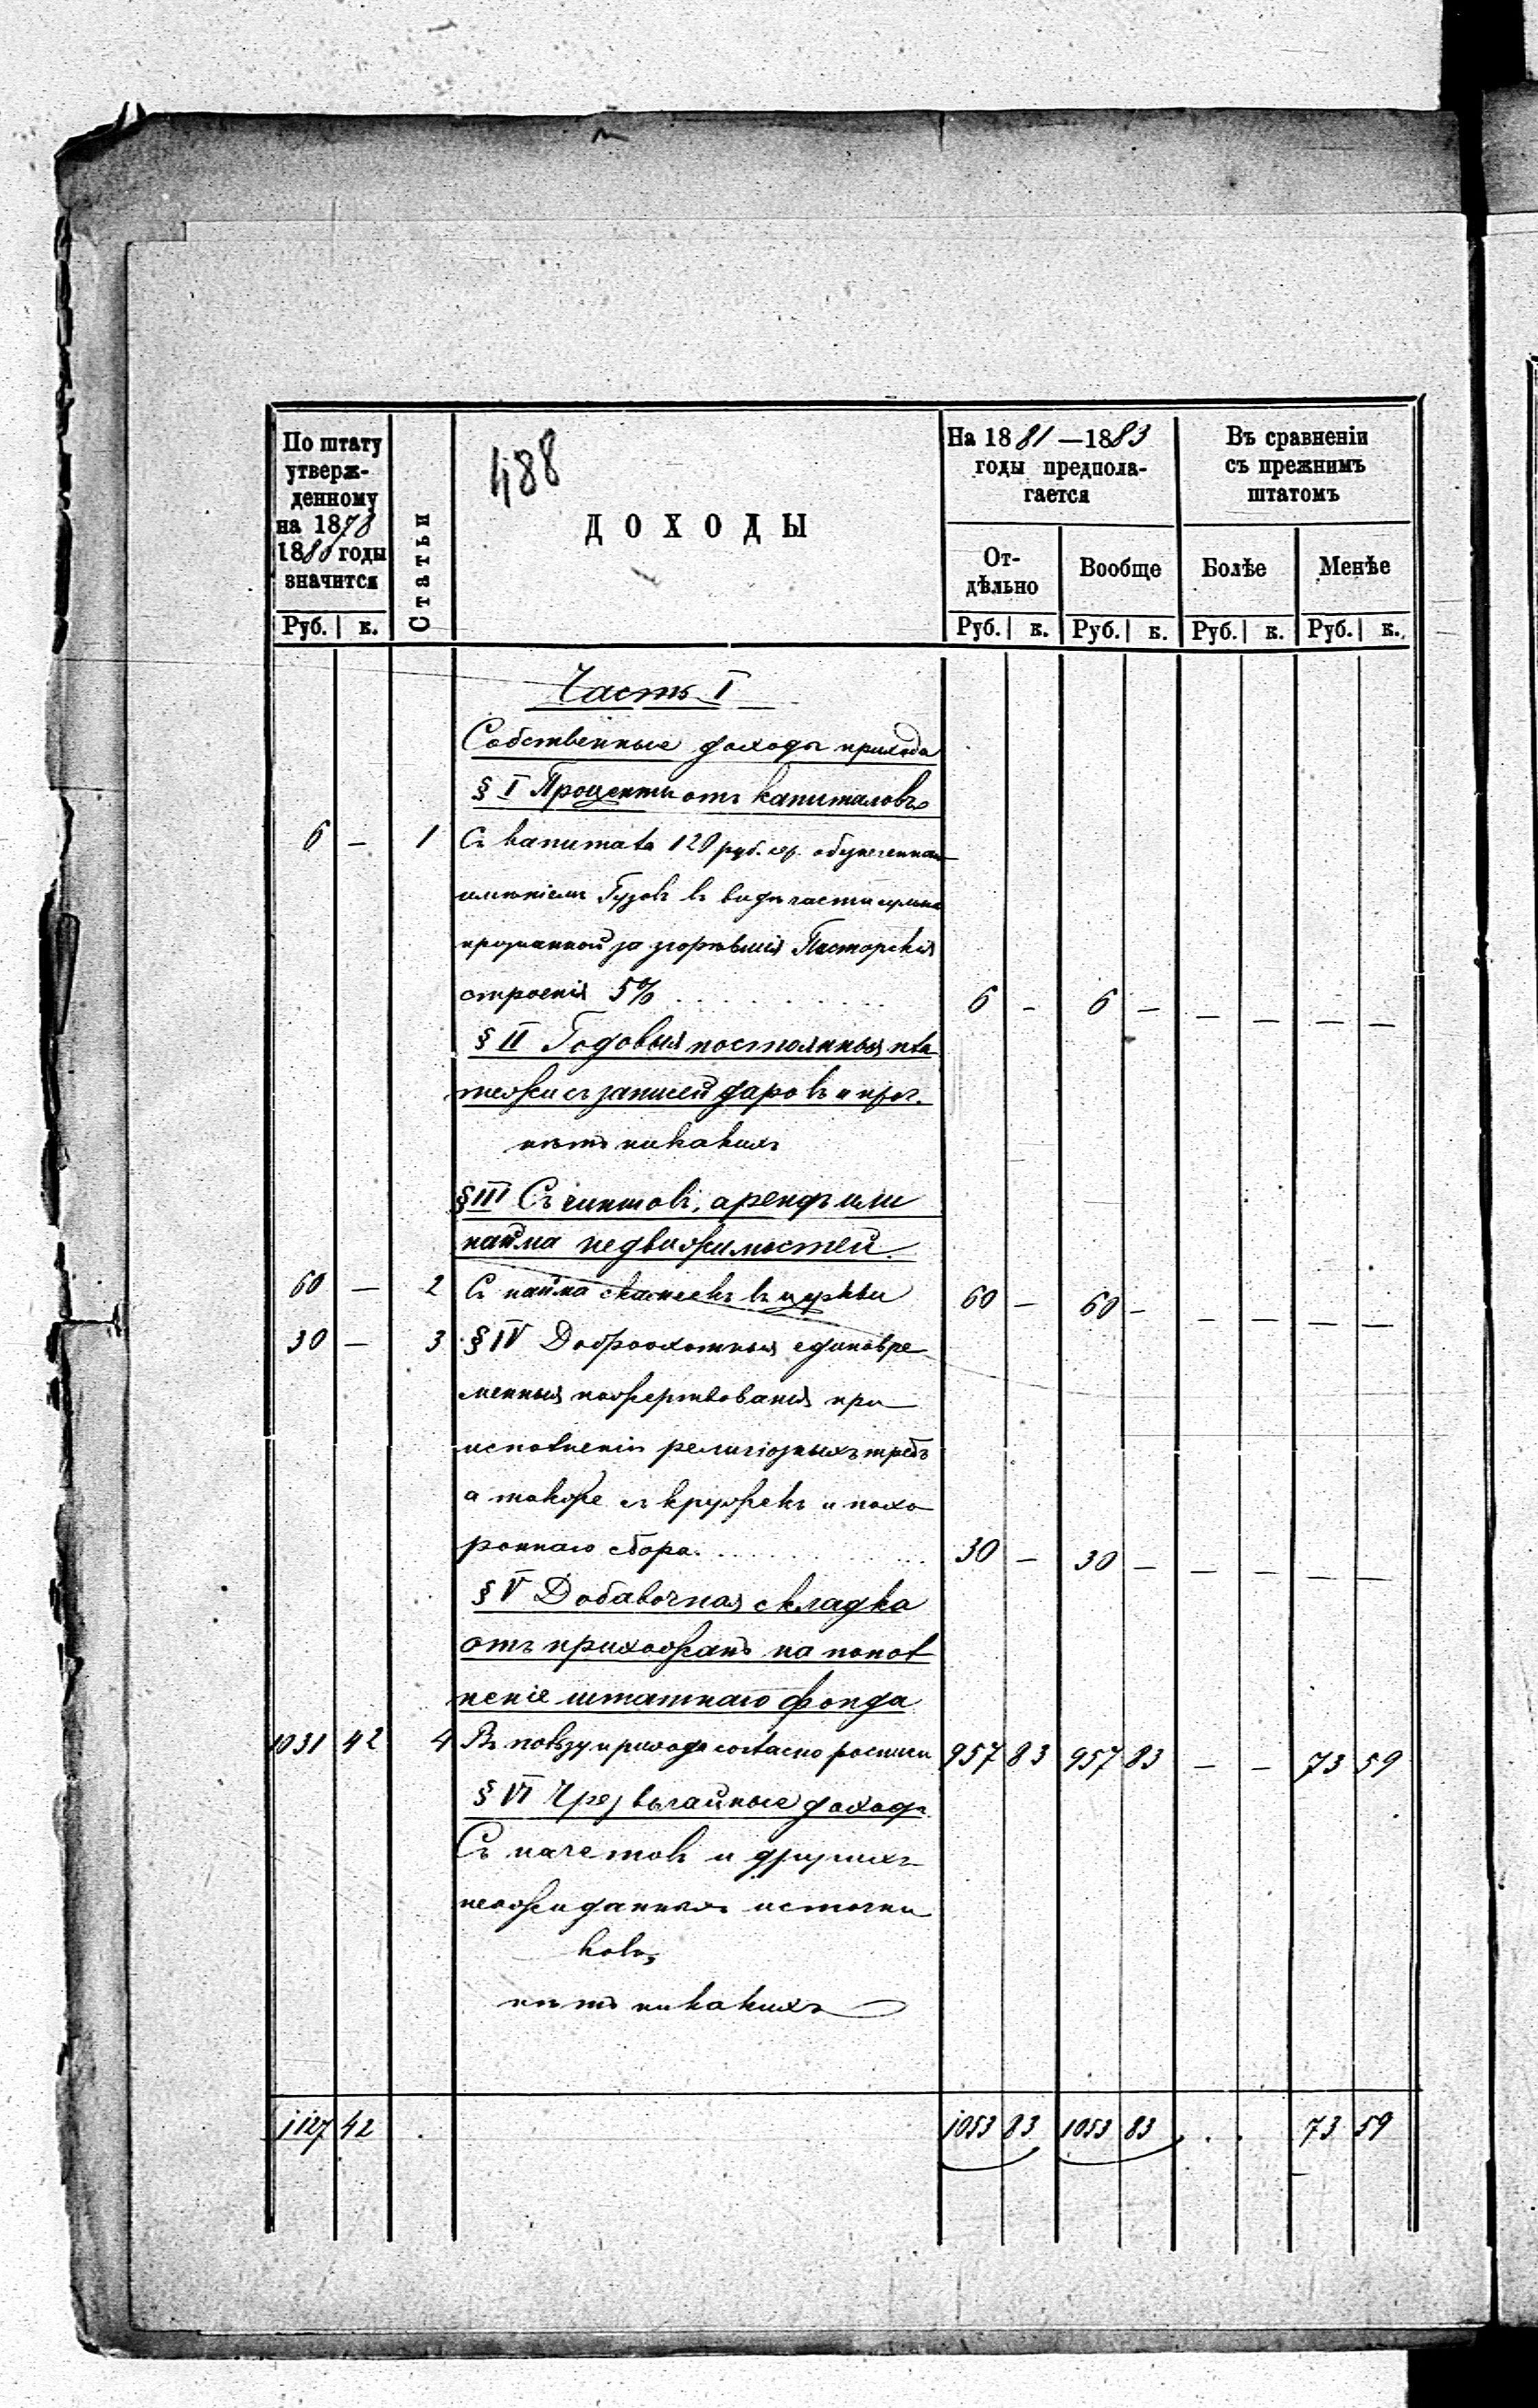 488
По штату
утверж-
денному
на 1878
1880 годы
значится
Руб. к.
Статьи
ДОХОДЫ
На 1881—1883
годы предпола-
гается
От-
дѣльно
Руб. к.
Вообще
Руб. к.
Въ сравненіи
съ прежнимъ
штатомъ
Болѣе
Руб. к.
Менѣе
Руб. к.
Часть I
Собственные доходы прихода
§ I Проценты отъ капиталовъ
6 — 1 Съ капитала 120 руб. сер.
имѣніемъ Гузовъ въ видѣ части
за згорѣвшія Пасторскія
строенія 5% . . . . . . . 6 — 6 — — — — —
§ II Годовыя постоянныя пла
тежи съ записей даровъ и проч.
нѣтъ никакихъ
§ III Съ чиншовъ, арендъ или
найма недвижимостей.
60 — 2 Съ найма скамеекъ въ церкви 60 — 60 — — — — —
30 — 3 § IV Доброохотныя единовре
менныя пожертвованія при
исполненіи религіозныхъ требъ
а также съ кружекъ и похо
роннаго сбора. . . . . . . 30 — 30 — — — — —
§ V Добавочная складка
отъ прихожанъ на попол
неніе штатнаго фонда
1031 42 4 Въ пользу прихода согласно росписи 957 83 957 83 — — 73 59
§ VI Чрезвычайные доходы
Съ начетовъ и другихъ
неожиданныхъ источни
ковъ,
нѣтъ никакихъ
1127 42 1053 83 1053 83 . . 73 59